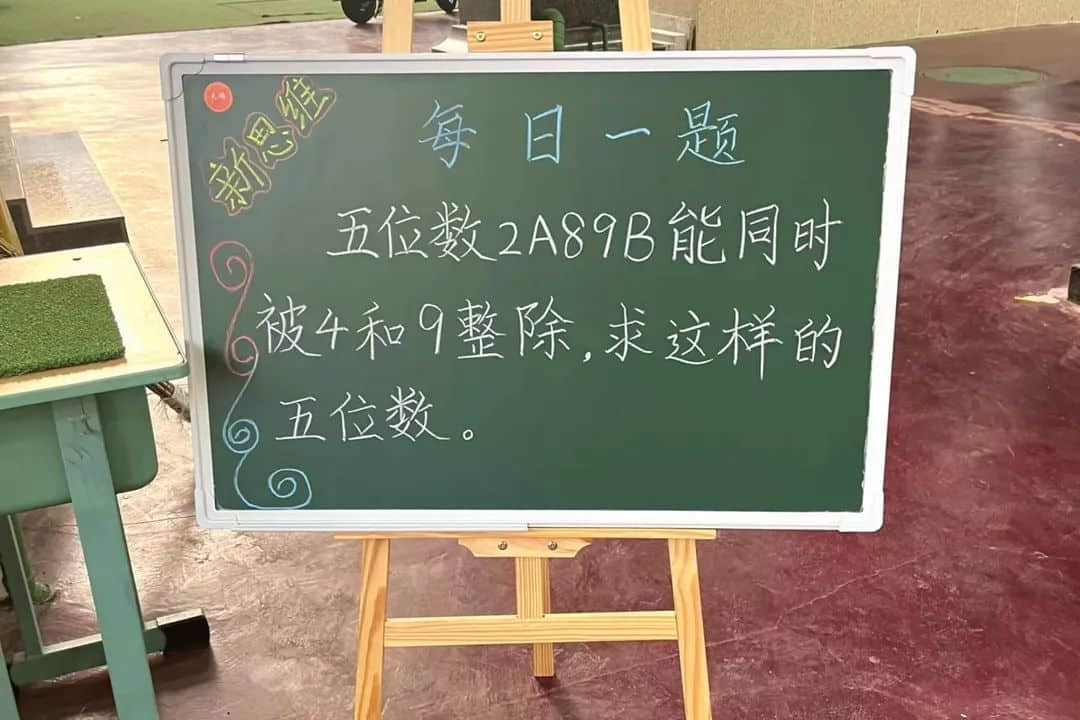 新思维
每日一题
五位数2A89B能同时
被4和9整除,求这样的
五位数。